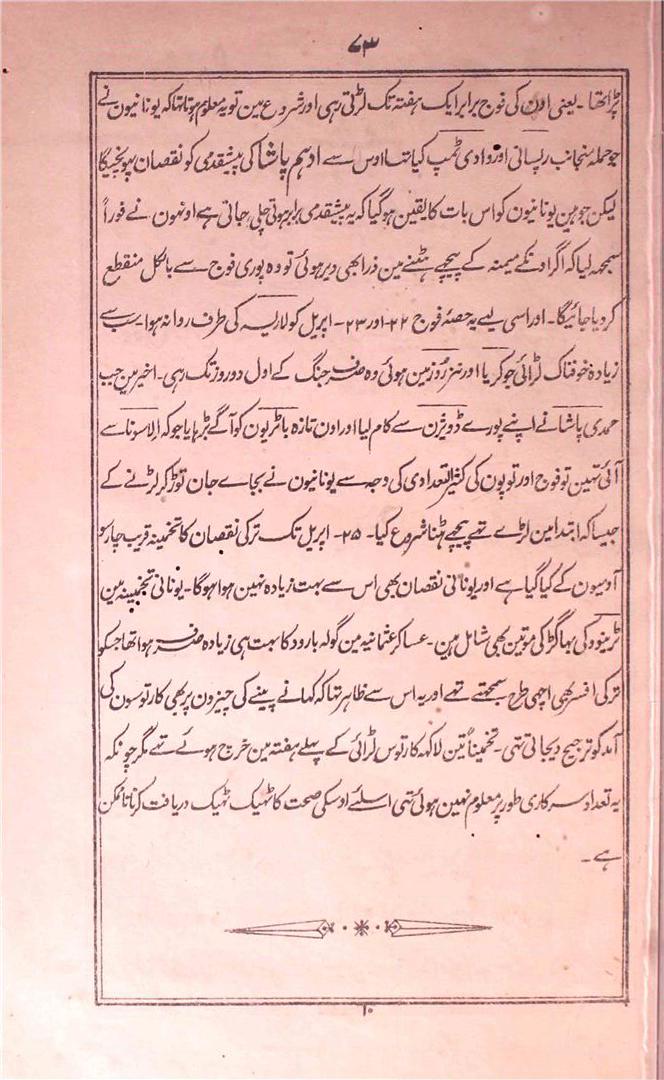 ۷۳
پڑا تھا ۔ یعنی اون کی فوج برابر ایک ہفتہ تک لڑتی رہی اور شروع مین تو یہ معلوم ہوتا تھا کہ یونانیون نے
جو حملہ منجانب رپسانی اور وادی ٹمپ کیا تھا اوس سے ادہم پاشا کی پیشقدمی کو نقصان پہونچیگا
لیکن جوہین یونانیون کو اس بات کا یقین ہو گیا کہ یہ پیشقدمی برابر ہوتی چلی جاتی ہے اونہون نے فوراً
سمجھ لیا کہ اگر اونکے میمنہ کے پیچھے ہٹنے مین ذرا بھی دیر ہوئی تو وہ پوری فوج سے بالکل منقطع
کر دیا جائیگا ۔ اور اسی لیے یہ حصۂ فوج ۲۲ اور ۲۳ ۔ اپریل کو لاریسہ کی طرف روانہ ہوا سب سے
زیادہ خوفناک لڑائی جو کریا اور نزروز مین ہوئی وہ صرف جنگ کے اول دو روز تک رہی ۔ اخیر مین جب
حمدی پاشا نے اپنے پورے ڈویژن سے کام لیا اور اون تازہ باٹریون کو آگے بڑہایا جو کہ الاسونا سے
آئی تہین تو فوج اور توپون کی کثیر التعدادی کی وجہ سے یونانیون نے بجاے جان توڑ کر لڑنے کے
جیسا کہ ابتدا مین لڑے تھے پیچھے ہٹنا شروع کیا ۔ ۲۵ ۔ اپریل تک ترکی نقصان کا تخمینہ قریب چار سو
آدمیون کے کیا گیا ہے اور یونانی نقصان بھی اس سے بہت زیادہ نہین ہوا ہوگا ۔ یونانی تخمینہ مین
ٹرینوو کی بہاگڑ کی موتین بھی شامل ہین ۔ عساکر عثمانیہ مین گولہ بارود کا بہت ہی زیادہ صرف ہوا تھا جسکو
ترکی افسر بھی اچھی طرح سمجھتے تھے اور یہ اس سے ظاہر تھا کہ کھانے پینے کی چیزون پر بھی کارتوسون کی
آمد کو ترجیح دیجاتی تھی ۔ تخمیناً تین لاکھ کارتوس لڑائی کے پہلے ہفتہ مین خرچ ہوئے تھے مگر چونکہ
یہ تعداد سرکاری طور پر معلوم نہین ہوئی تھی اسلئے اوسکی صحت کا ٹھیک ٹھیک دریافت کرنا ناممکن
ہے ۔
۱۰